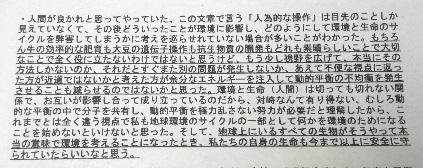 ・人間が良かれと思ってやっていた、この文章で言う「人為的な操作」は目先のことしか
見えていなくて、その後どういったことが環境に影響し、どのようにして環境と生命のサイ
クルを弊害してしまうかに考えを巡らせていない場合が多いことがわかった。もちろ
ん牛の効率的な肥育も大豆の遺伝子操作も抗生物質の開発もどれも素晴らしいことで大切
なことで全く役に立たないわけではないと思うけど、もう少し視野を広げて、本当にその
方法しかないのか、それだとすぐまた別の問題が発生しないか、あえて不便な視点に返っ
た方が近道ではないかと考えた方が余分なエネルギーを注入して動的平衡の不均衡を発生
させることも減らせるのではないかと思った。環境と生命（人間）は切っても切れない関
係で、お互いが影響し合って成り立っているのだから、対峙なんて有り得ない。むしろ動
的な平衡の中で分子を共有し、動的平衡を極力乱さない努力が必要だと理解したから、こ
れまでとは全く違う視点で私も地球環境のサイクルの一部として何か環境のためになる
ことを始めないといけないと思った。そして、地球上にいるすべての生物がそうやって本当
の意味で環境を考えることになったとき、私たちの自身の生命も今まで以上に安全に守
られていたらいいなと思う。